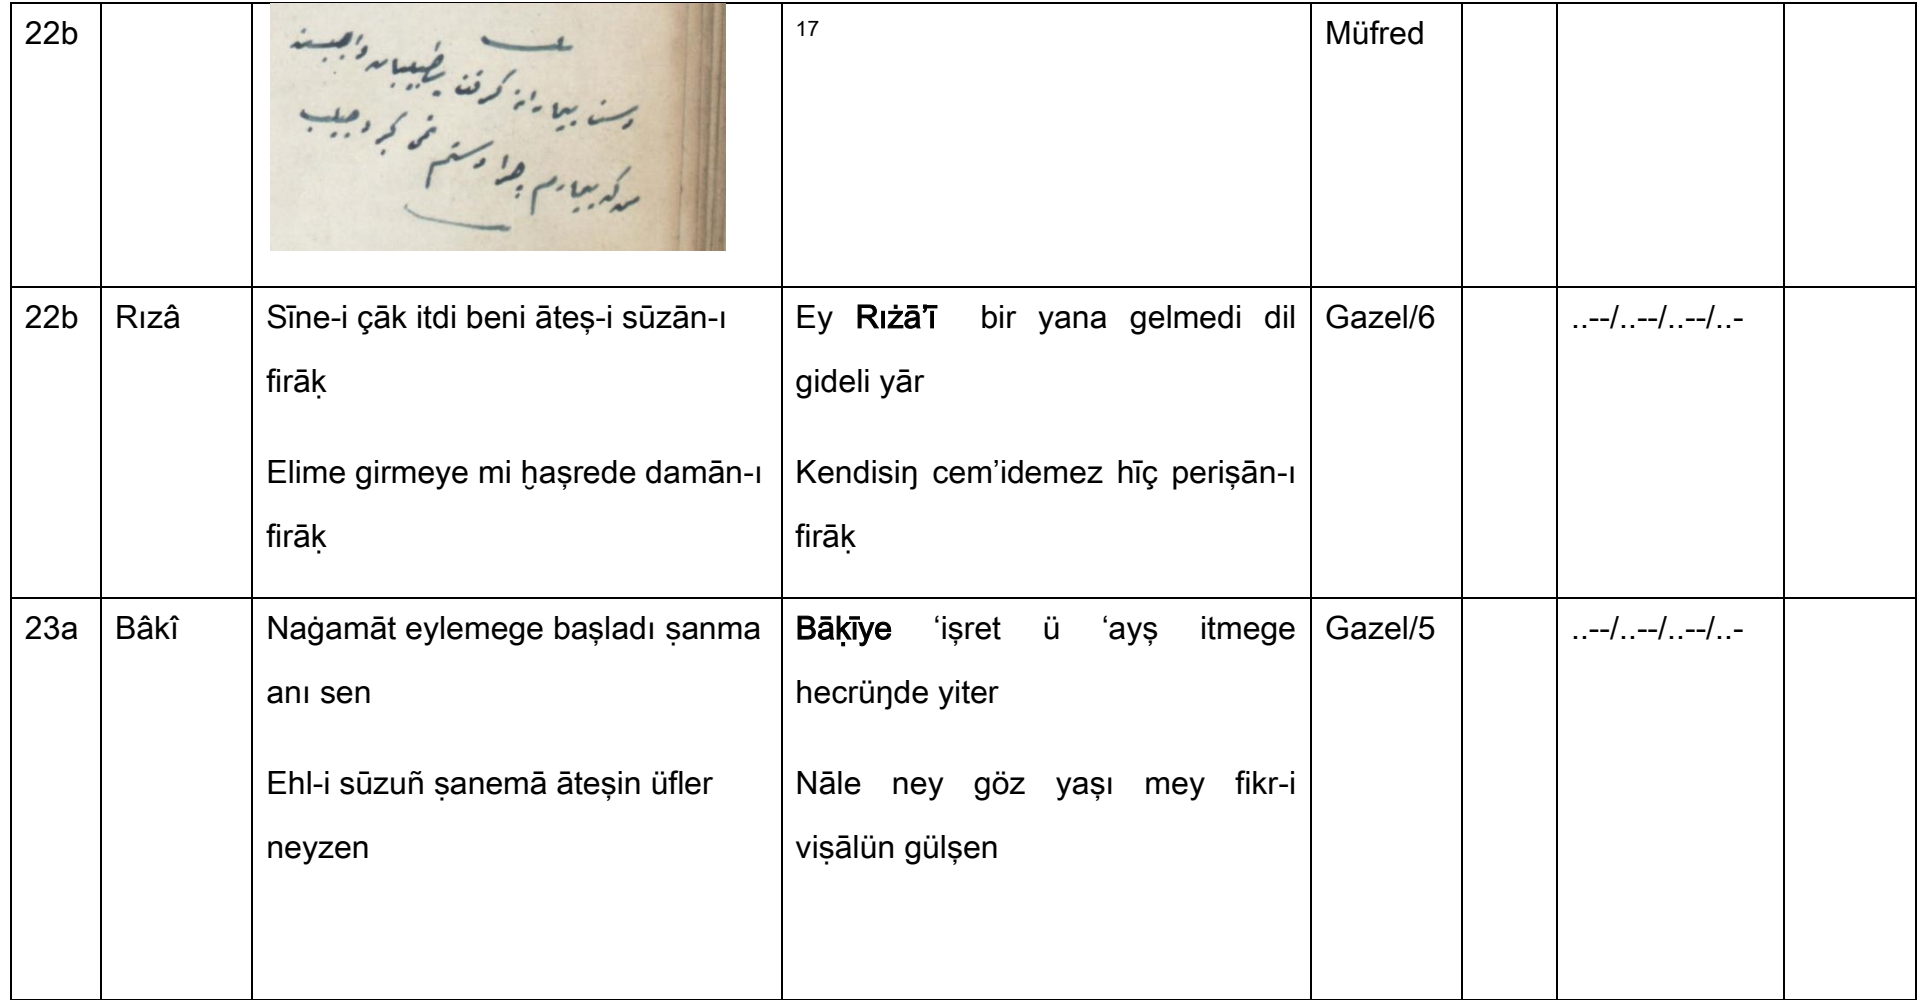 22b
دست بیمارانه گرفتن بر طبیبان واجبست
من که بیمارم چرا دستم نمی گیرد حبیب
17
Müfred
22b
Rızâ
Sīne-i çāk itdi beni āteş-i sūzān-ı
firāḳ
Elime girmeye mi ḫaşrede damān-ı
firāḳ
Ey Rıżā’ī bir yana gelmedi dil
gideli yār
Kendisiŋ cem’idemez hīç perişān-ı
firāḳ
Gazel/6
..--/..--/..--/..-
23a
Bâkî
Naġamāt eylemege başladı ṣanma
anı sen
Ehl-i sūzuñ ṣanemā āteşin üfler
neyzen
Bāḳīye ‘işret ü ‘ayş itmege
hecrüŋde yiter
Nāle ney göz yaşı mey fikr-i
viṣālün gülşen
Gazel/5
..--/..--/..--/..-